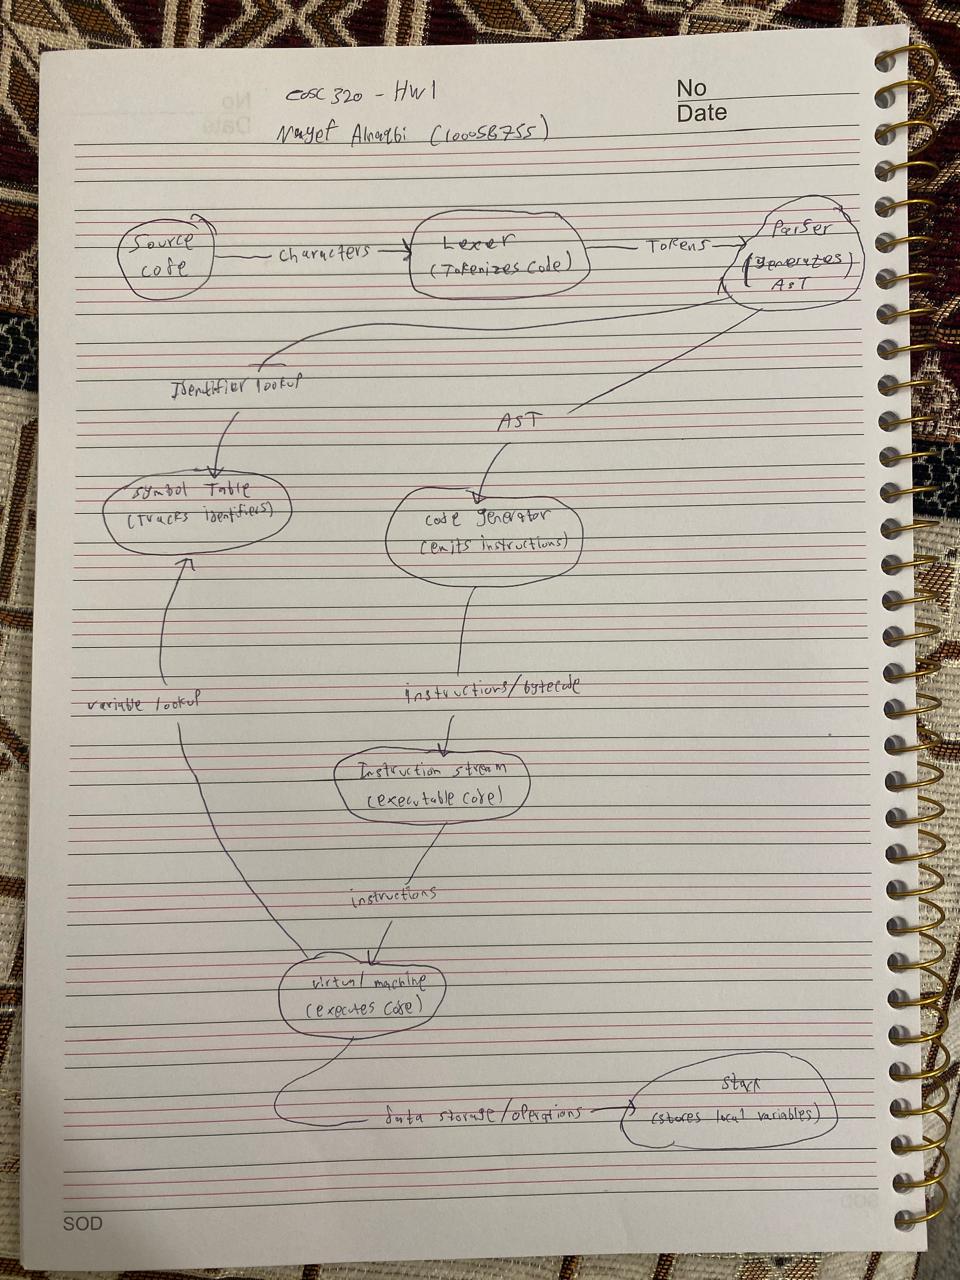 No
Date
COSC 320 - HW1
Nayef Alnaqbi (100058755)
Source
code
characters
Lexer
(Tokenizes Code)
Tokens
Parser
(generates)
AST
Identifier lookup
AST
symbol Table
(Tracks identifiers)
code generator
(emits instructions)
variable lookup
instructions/bytecode
Instruction stream
(executable code)
instructions
virtual machine
(executes code)
data storage/operations
stack
(stores local variables)
SOD